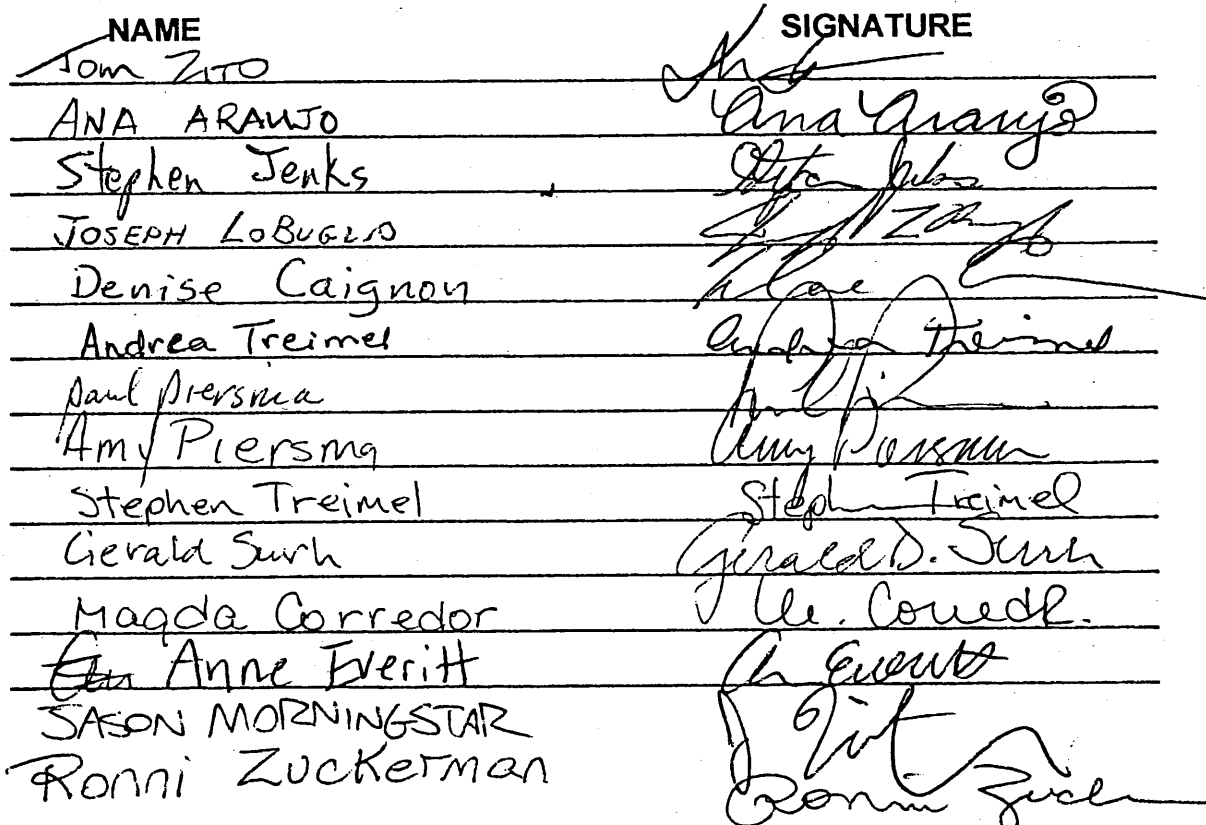 NAME SIGNATURE
Tom ZITO
ANA ARAUJO Ana Araujo
Stephen Jenks
JOSEPH LOBUGLIO
Denise Caignon
Andrea Treimel Andrea Treimel
Paul Piersma
Amy Piersma Amy Piersma
Stephen Treimel Stephen Treimel
Gerald Surh Gerald D. Surh
Magda Corredor M.
Anne Everitt
JASON MORNINGSTAR
Ronni Zuckerman Ronni